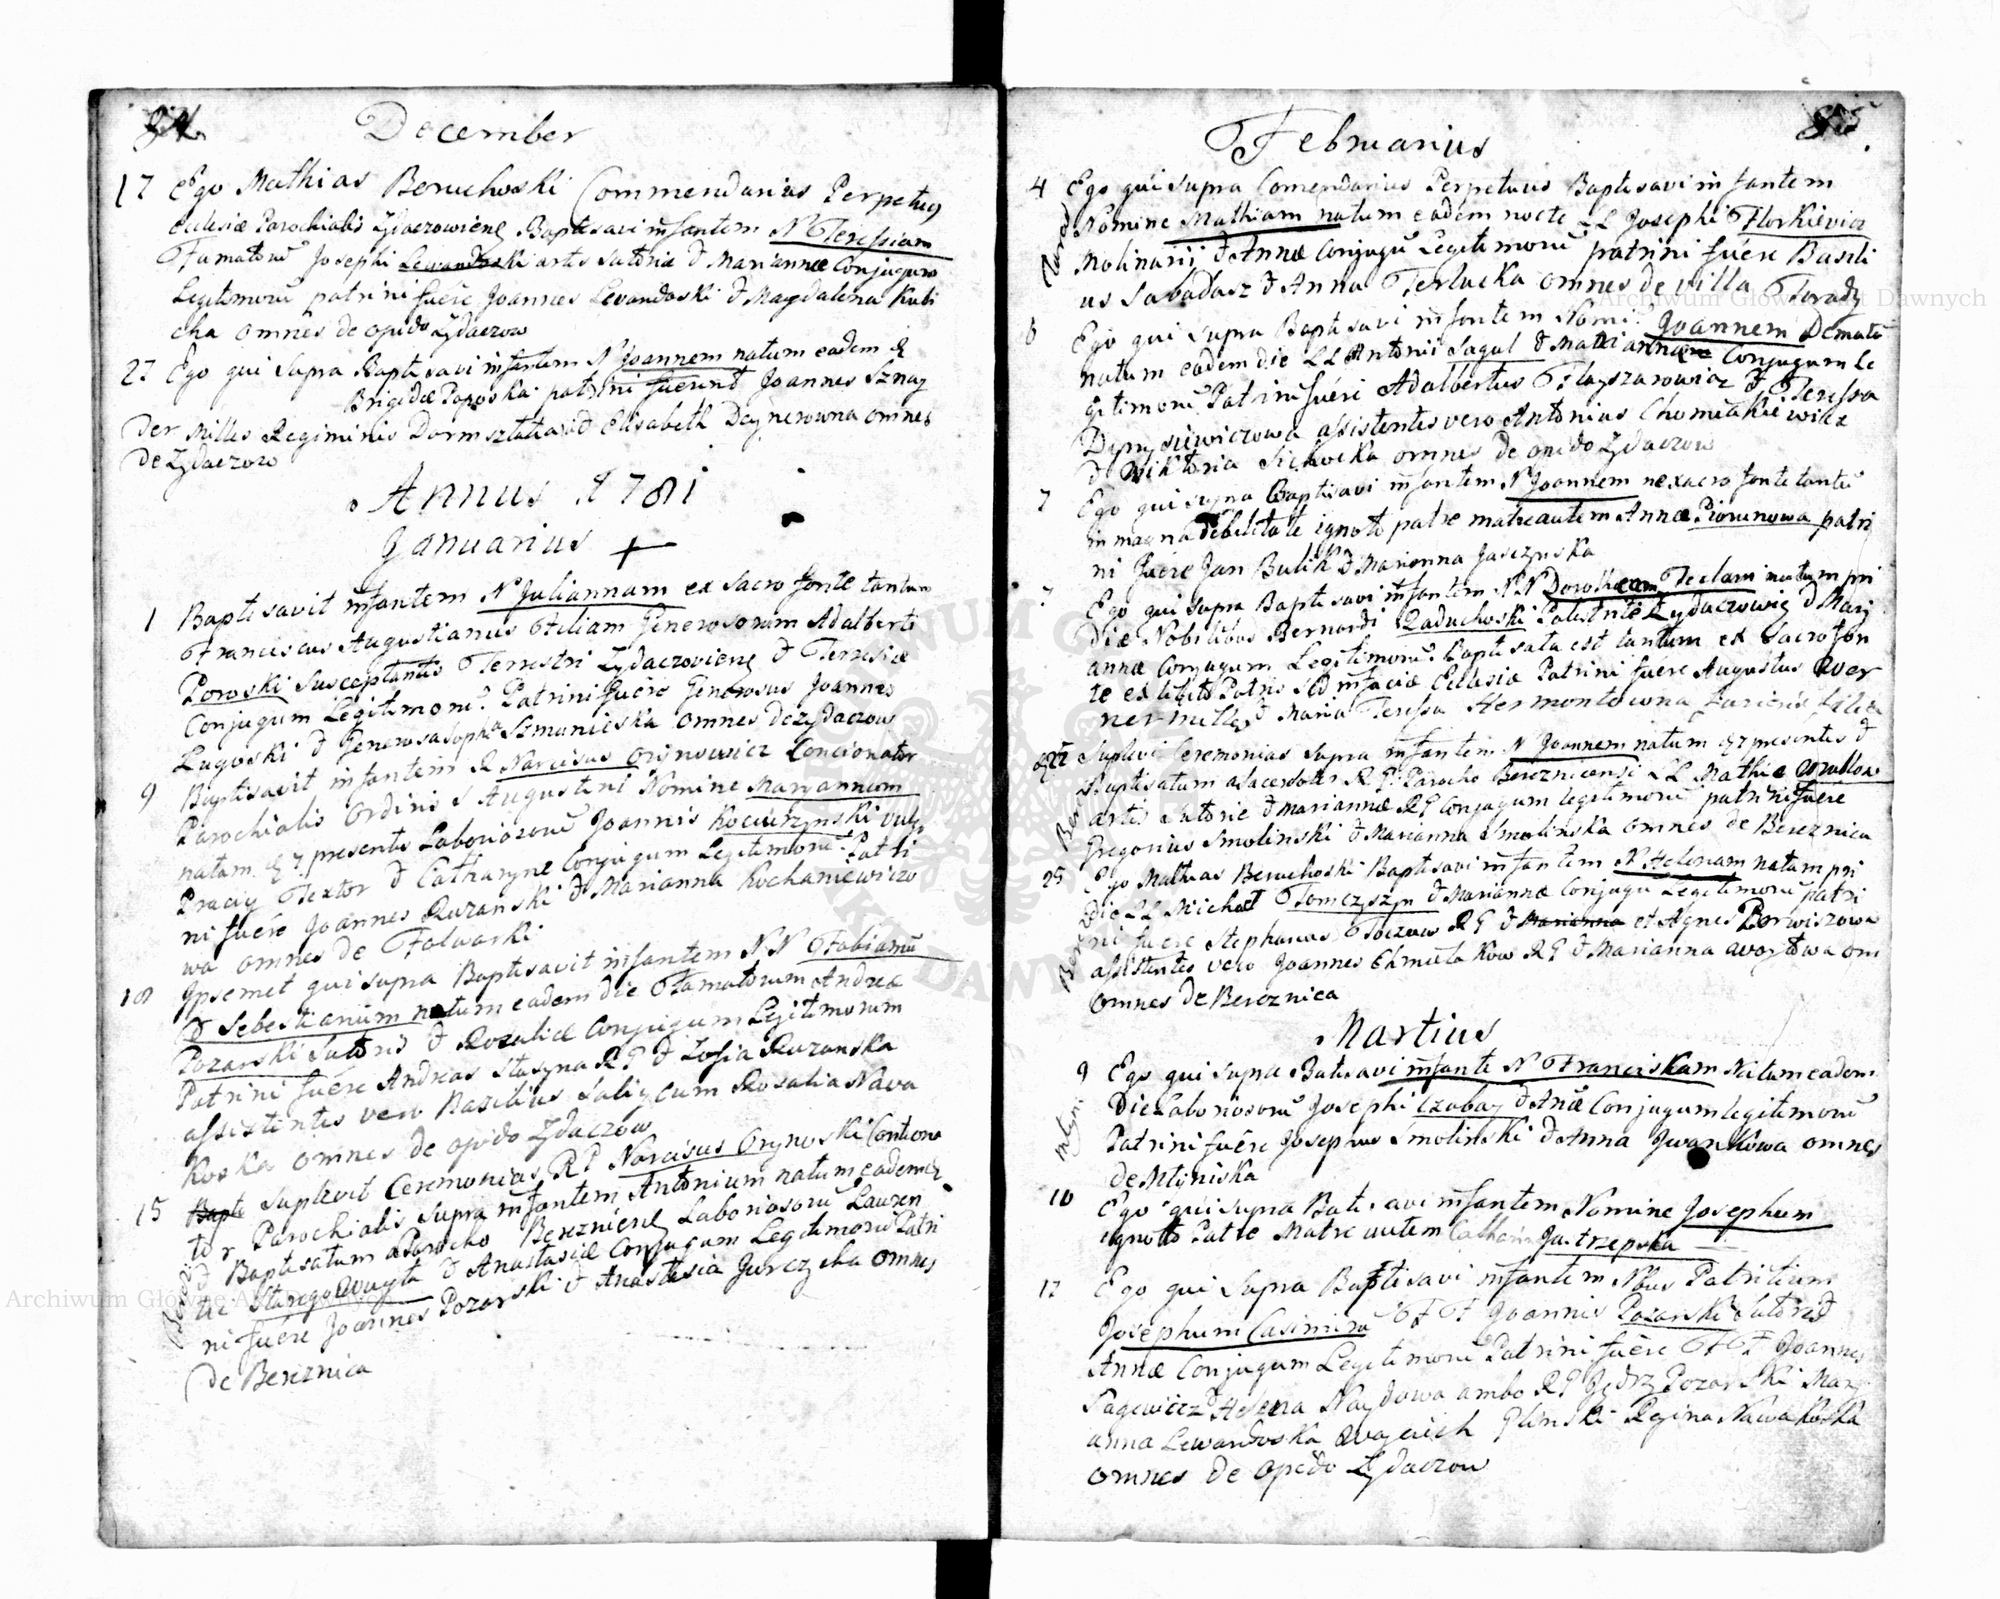 84.
December
17 Ego Mathias Beruchoski Commendarius Perpetus
Eclesiæ Parochialis Zydaczowienę Baptisavi infantem N Teressiam
Famatorū Josephi Lewandoski artis Sutoriæ & Mariannæ Conjugum
Legitimorū patrini fuére Joannes Levandoski & Magdalena Kubi
cka omnes de opido Zydaczow
27 Ego qui supra Baptisavi infantem N Joannem natum eadem
Brigidæ Paposka patrini fuerunt Joannes Sznay
der Milles Regiminis & Elisabeth Daynerowna omnes
de Zydaczow
Annus 1781
Januarius
1 Baptisavit infantem N Juliannam ex Sacro fonte tantum
Franciscus Augustianus Filiam Generosorum Adalberti
Poroski Susceptantis Terrestri Zydaczovienę & Teresiæ
Conjugum Legitimorū Patrini fuére Generosus Joannes
Lugoski & Generosa Sopha Szmunieska omnes de Zydaczow
9 Baptisavit infantem R Narcisus Orinowicz Concionator
Parochialis Ordinis S Augustini Nomine Maryannam
natam 7 presentis Laboriosorū Joannis Kociurzynski vulg.
Praciy Textor & Catharyne Conjugum Legitimorū Patri
ni fuére Joannes Ruzanski & Marianna Kochaniewiczo
wa omnes de Folwarki
18 Ipsemet qui supra Baptisavit infantem N N Fabianū
& Sebestianum natum eadem die Famatorum Andreæ
Pozarski Sutoris & Rozaliæ Conjugum Legitimorum
Patrini fuére Andreas Stasyna R P & Zofia Ruzanska
assistentes vero Basilius Saliy cum Rosalia Nawa
koska omnes de opido Zydaczow
15 Suplevit Ceremonias R P Narcisus Orynoski Contiona
tor Parochialis supra infantem Antonium natum eadem
& Baptisatum a Parocho Berezniene Laboriosorū Lauren
tii Stango Woyta & Anastasiæ Conjugum Legitimorū Patri
ni fuére Joannes Pozarski & Anastasia Jurczycha omnes
de Bereznica
85
Februarius
4 Ego qui supra Comendarius Perpetuus Baptisavi infantem
Nomine Mathiam natum eadem nocte LL Josephi Florkievicz
Molinarij & Annæ Conjugū Legitimorū patrini fuére Basili
us Sabadasz & Anna Terlucka omnes de villa Turady
6 Ego qui supra Baptisavi infantem Nomi: Joannem Demata
natum eadem die LL Antonii Sagul & Mariannæ Conjugum Le
gitimorū Patrini fuére Adalbertus Flayszarowicz & Teressa
assistentes vero Antonius Chomiakiewicz
& Wiktoria Sichocka omnes de opido Zydaczow
7 Ego qui supra Baptisavi infantem N Joannem ex sacro fonte tantū
in magna debilitate ignoto patre matre autem Annæ Piorunowa patri
ni fuére Jan Bulik & Marianna Jasczynska
7 Ego qui supra Baptisavi infantem N N Dorotheam Teclam natam pri
die Nobilibus Bernardi Raduchoski Palestræ Zydaczowię & Mari
annæ Conjugum Legitimorū Baptisata est tantum ex Sacro fon
te Patris sed in faciæ Eclesiæ Patrini fuére Augustus Wer
ner milles & Maria Teressa Hermontowna
22 Suplevi Ceremonias supra infantem N Joannem natum 7 presentis &
Baptisatum a sacerdote R P: Parocho Berezniensi LL Mathie
artis Sutorie & Mariannæ R P Conjugum legitimorū patrini fuére
Gregorius Smolinski & Marianna Smolinska omnes de Bereznica
25 Ego Mathias Beruchoski Baptisavi infantem N Helenam natam pri
die LL Michał Tomczyszyn & Mariannæ Conjugū Legitimorū patri
ni fuere Stephanus R P & Marianna et Agnes Perwiszowa
assistentes vero Joannes Chmielakow R P & Marianna Woytowa om
omnes de Bereznica
Martius
9 Ego qui supra Batisavi infantē N Franciskam Natam eadem
Die Laboriosorū Josephi Czabay & Anæ Conjugum legitimorū
Patrini fuére Josephus Smolinski & Anna Jwankowa omnes
de Mlyniska
10 Ego qui supra Batisavi infantem Nomine Josephum
ignoto Patre Matre autem Jastrzepska
12 Ego qui supra Baptisavi infantem Nbus Patritium
Josephum Casimirū F F Joannis Pozarski Sutoris &
Annæ Conjugum Legitimorū Patrini fuére F F Joannes
Pagewicz & Helena Naydowa ambo R P Jędrzy Pozarski Mary
anna Lewandoska Woyciech Glinski Regina Nawakoska
omnes de opido Zydaczow
Archiwum Główne Akt Dawnych
Archiwum Główne Akt Dawnych